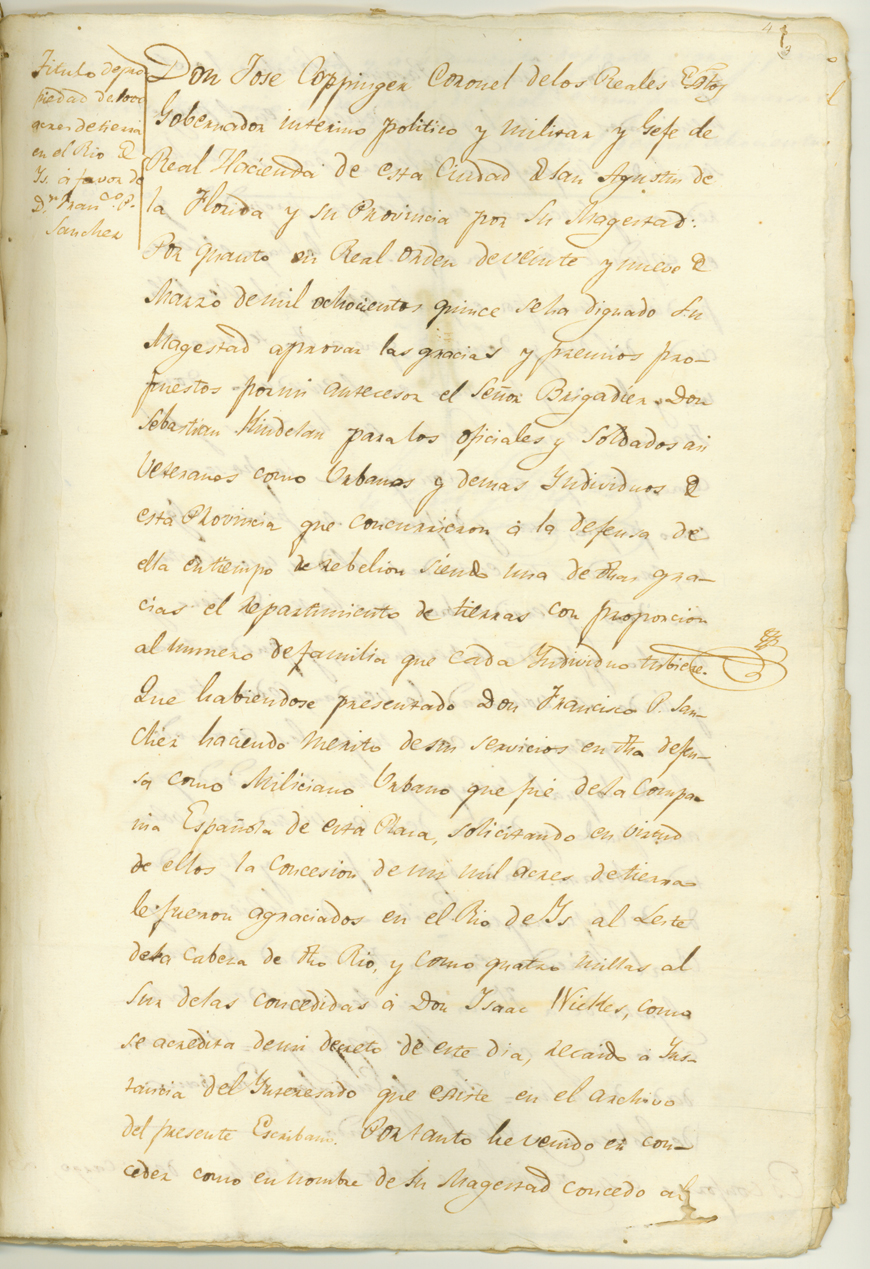 Titulo de pro
piedad de 1000
acres de tierra
en el Rio de
Ys. á favor de
Dn. Franco. P.
Sanchez
Don Jose Coppinger Coronel delos Reales Extos
Gobernador interino politico y militar y Gefe de
Real Hacienda de esta Ciudad de San Agustin de
la Florida y su Provincia por Su Magestad:
Por quanto en Real orden de veinte y nueve de
Marzo de mil ochocientos quince se ha dignado Su
Magestad aprovar las gracias y premios pro-
puestos por mi antecesor el Señor Brigadier Don
Sebastian Kindelan para los oficiales y Soldados asi
Veteranos como Urbanos y demas Individuos de
esta Provincia que concurrieron á la defensa de
ella en tiempo de rebelion siendo una de dhas gra-
cias el repartimiento de tierras con proporcion
al numero de familia que cada Individuo tubiere.
Que habiendose presentado Don Francisco P. San-
chez haciendo merito de sus servicios en dha defen-
sa como Miliciano Urbano que fue de la Compa
nia Española de esta Plaza, solicitando en virtud
de ellos la concesion de mil acres de tierra
le fueron agraciados en el Rio de Ys al Leste
dela Cabeza de dho Rio, y como quatro millas al
Sur delas concedidas á Don Isaac Wickes, como
se acredita de mi decreto de este dia, recaido á Ins-
tancia del Interesado que existe en el archivo
del presente Escribano. Portanto he venido en con-
ceder como en nombre de Su Magestad concedo al